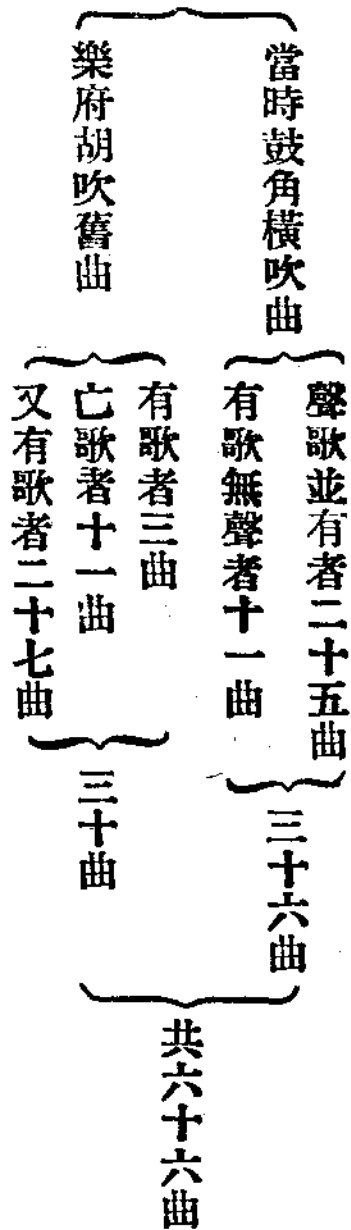 當時鼓角橫吹曲
聲歌並有者二十五曲
有歌無聲者十一曲
三十六曲
樂府胡吹舊曲
有歌者三曲
亡歌者十一曲
又有歌者二十七曲
三十曲
共六十六曲